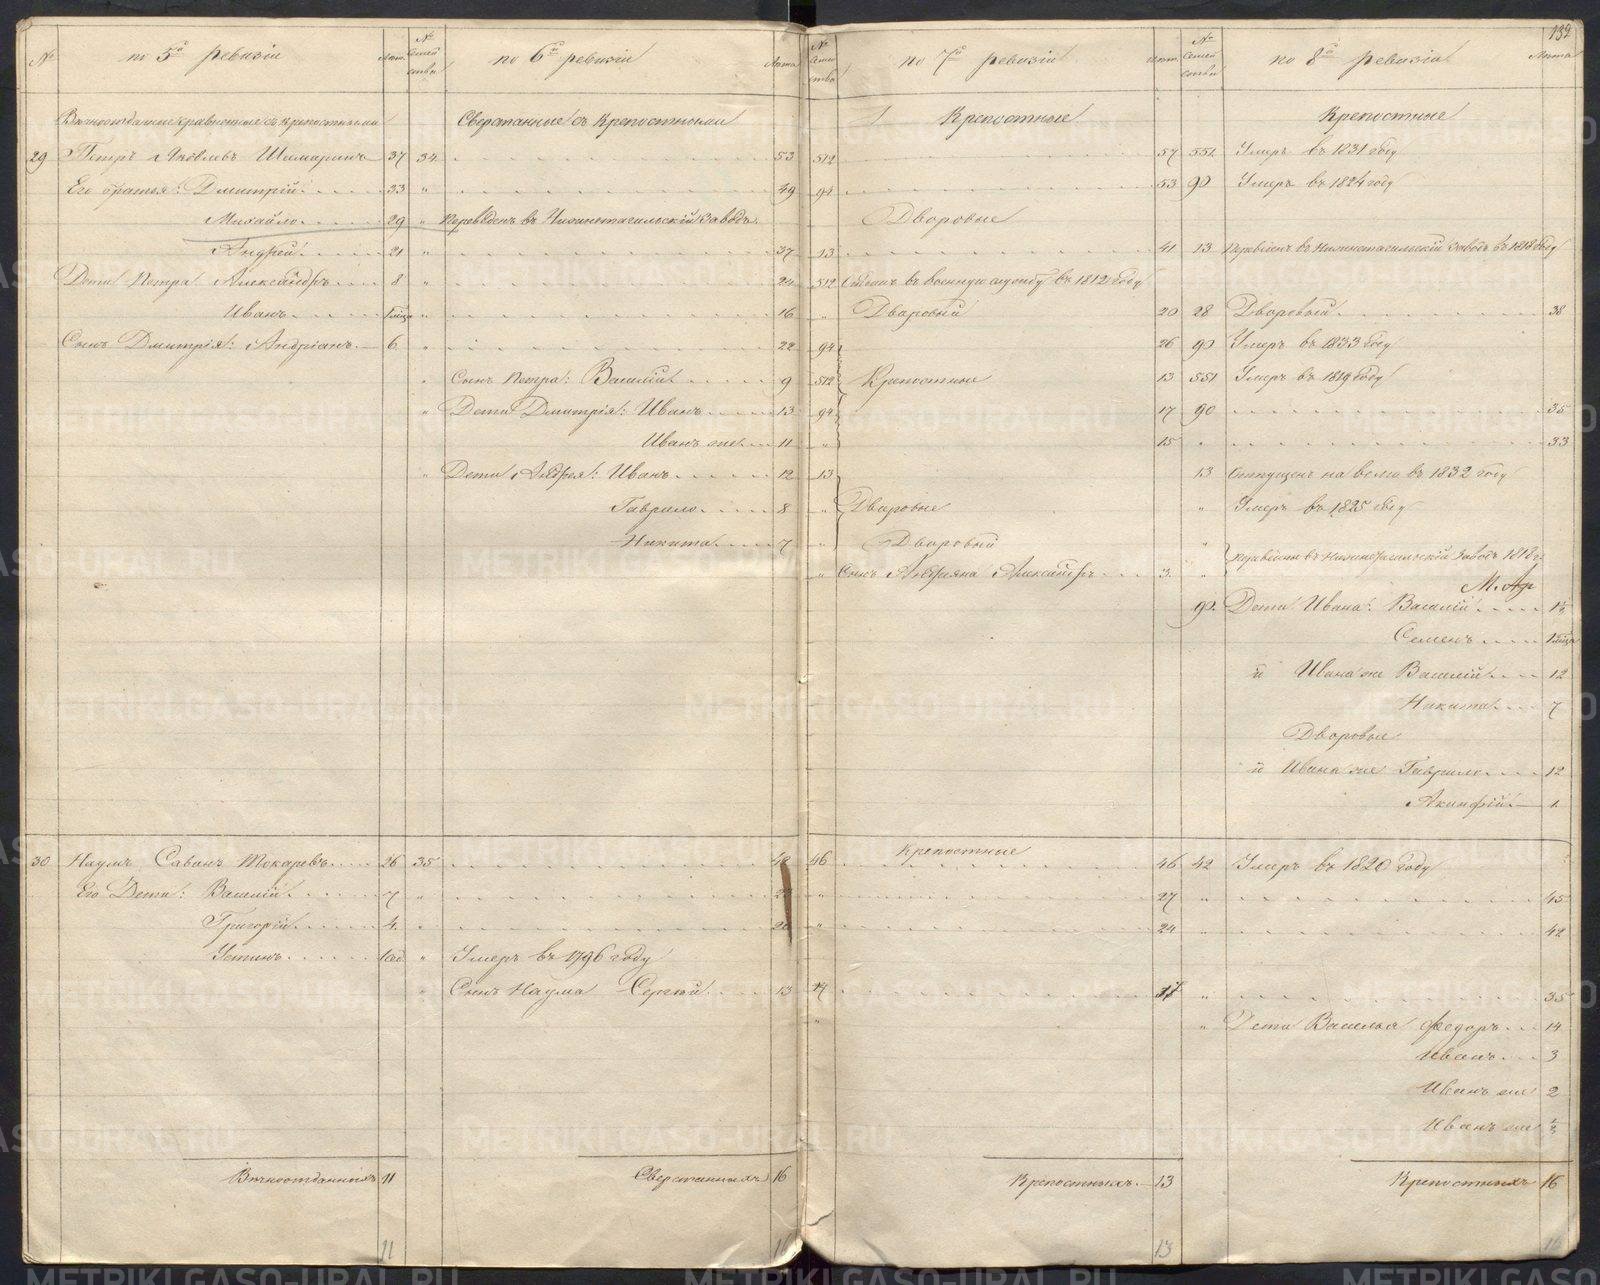 № по 5й ревизіи Лѣта № Семействъ по 6й ревизіи Лѣта № Семейства по 7й ревизіи Лѣта № Семейства по 8й ревизіи Лѣта
132
Вѣчноотданные уравненные съ крѣпостными Сверстанные съ Крѣпостными Крѣпостные Крѣпостные
29 Петръ Яковлевъ 37 34 53 512 57 551 Умеръ въ 1831 году
Его братья: Дмитрій 33 " 49 94 53 90 Умеръ въ 1824 году
Михайло 29 " Переведенъ въ Нижнетагильскій Заводъ Дворовые
Андрей 21 " 37 13 41 13 Переведенъ въ Нижнетагильскій Заводъ въ 1818 году
Дети Петра Александръ 8 " 24 512 Отданъ въ военную службу въ 1812 году
Иванъ " 16 " Дворовый 20 28 Дворовый 38
Сынъ Дмитрія: Андріанъ 6 " 22 94 26 90 Умеръ въ 1833 году
" Сынъ Петра: Василій 9 512 Крѣпостные 13 551 Умеръ въ 1819 году
" Дети Дмитрія: Иванъ 13 94 17 90 35
Иванъ же 11 " 15 " 33
" Дети Андрея: Иванъ 12 13 13 Отпущенъ на волю въ 1832 году
Гаврило 8 " Дворовые " Умеръ въ 1825 году
Никита 7 " Дворовый " Переведены въ Нижнетагильскій Заводъ 1818 г.
" Сынъ Андреяна Александръ 3 "
90 Дети Ивана: Василій
Семенъ
и Ивана же Василій 12
Никита 7
Дворовые
и Ивана же Гаврило 12
Акинфій 1
30 Наумъ Савинъ Токаревъ 26 35 42 46 Крѣпостные 46 42 Умеръ въ 1820 году
Его Дети: Василій 7 " " 27 " 45
Григорій 4 " 20 " 24 " 42
Устинъ 1 год " Умеръ въ 1796 году
" Сынъ Наума Сергѣй 13 17 " 35
" " Дети Василья Федоръ 14
Иванъ 3
Иванъ же 2
Иванъ же
Вѣчноотданныхъ 11 Сверстанныхъ 16 Крѣпостныхъ 13 Крѣпостныхъ 16
11 16 13 16
METRIKI.GASO-URAL.RU